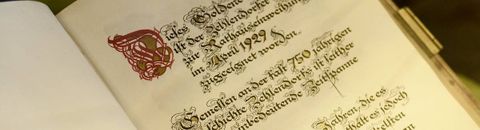 Dieses Goldene
ist der Zehlendorfer
zur Rathauseinweihung
im April 1929
zugeeignet worden.
Gemessen an der fast 750 jährigen
Geschichte Zehlendorfs ist seither
unbedeutende Zeitspanne
Jahren, die es
jedoch